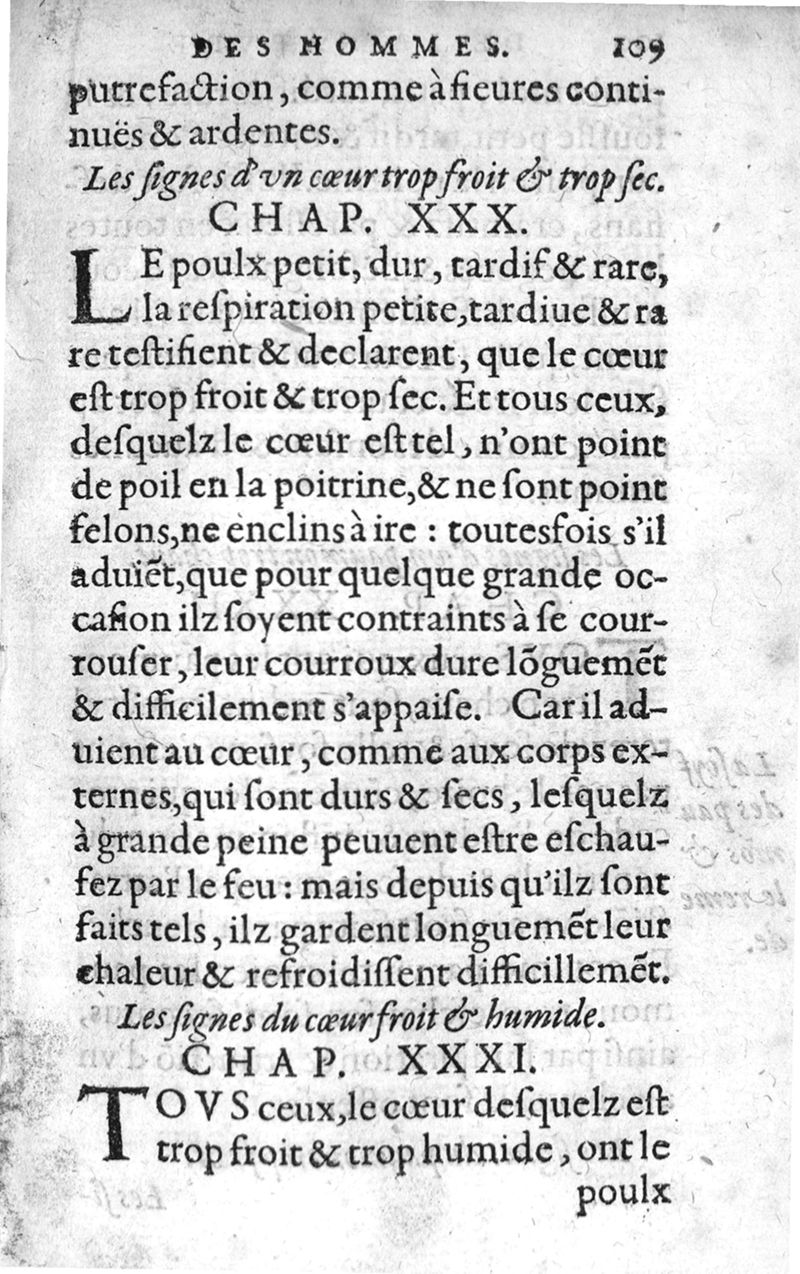 DES HOMMES. 109
putrefaction, comme à fieures conti-
nuës & ardentes.
Les ſignes d'vn cœur trop froit & trop ſec.
CHAP. XXX.
LE poulx petit, dur, tardif & rare,
la reſpiration petite, tardiue & ra
re teſtifient & declarent, que le cœur
eſt trop froit & trop ſec. Et tous ceux,
deſquelz le cœur eſt tel, n'ont point
de poil en la poitrine, & ne ſont point
felons, ne enclins à ire : toutesfois s'il
aduiẽt, que pour quelque grande oc-
caſion ilz ſoyent contraints à ſe cour-
rouſer, leur courroux dure lõguemẽt
& difficilement s'appaiſe. Car il ad-
uient au cœur, comme aux corps ex-
ternes, qui ſont durs & ſecs, leſquelz
à grande peine peuuent eſtre eſchau-
fez par le feu : mais depuis qu'ilz ſont
faits tels, ilz gardent longuemẽt leur
chaleur & refroidiſſent difficillemẽt.
Les ſignes du cœur froit & humide.
CHAP. XXXI.
TOVS ceux, le cœur deſquelz eſt
trop froit & trop humide, ont le
poulx